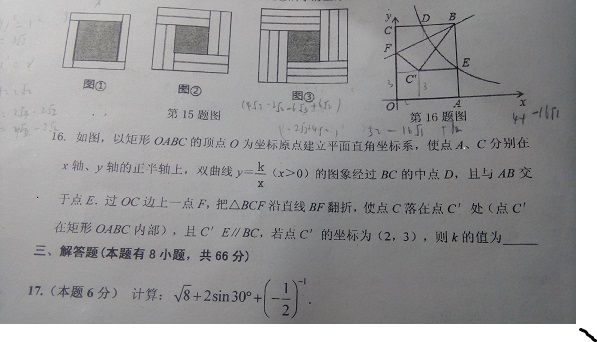 图①
图②
图③
第15题图
y
C
D
B
F
C'
E
3
O
A
x
第16题图
16. 如图，以矩形 OABC 的顶点 O 为坐标原点建立平面直角坐标系，使点 A、C 分别在
x 轴、y 轴的正半轴上，双曲线 y=k/x (x>0) 的图象经过 BC 的中点 D，且与 AB 交
于点 E. 过 OC 边上一点 F，把△BCF 沿直线 BF 翻折，使点 C 落在点 C' 处（点 C'
在矩形 OABC 内部），且 C' E∥BC，若点 C' 的坐标为（2，3），则 k 的值为______
三、解答题(本题有 8 小题，共 66 分)
17.（本题 6 分） 计算：√8+2sin30°+(-1/2)^-1.